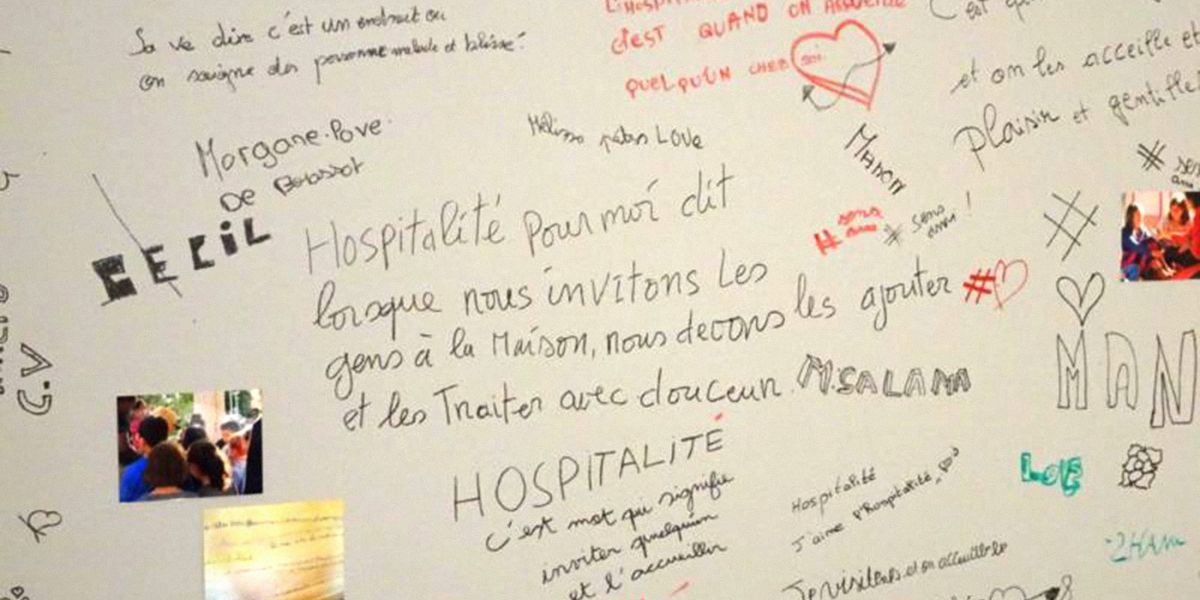 Sa ve dire c'est un endroit ou
on soigne des personne malade et blissé.
L'HOSPI
C'EST QUAND ON ACCUEILLE
QUELQU'UN CHEB soi
et on les acceille et
Plaisir et gentille
Morgane.Pove
De
Mélissa LOVE
MANON
CECIL
HOSPITALITÉ Pour moi dit
lorsque nous invitons Les
gens à la Maison, nous devons les ajouter #
et les Traiter avec douceur. M.SALAMA
# sens
* sens
#
MAN
HOSPITALITÉ
c'est mot qui signifie
inviter quelqu'un
et l'accueillir
Hospitalité
J'aime l'hospitalité,
LOE
Je visite et on accueille